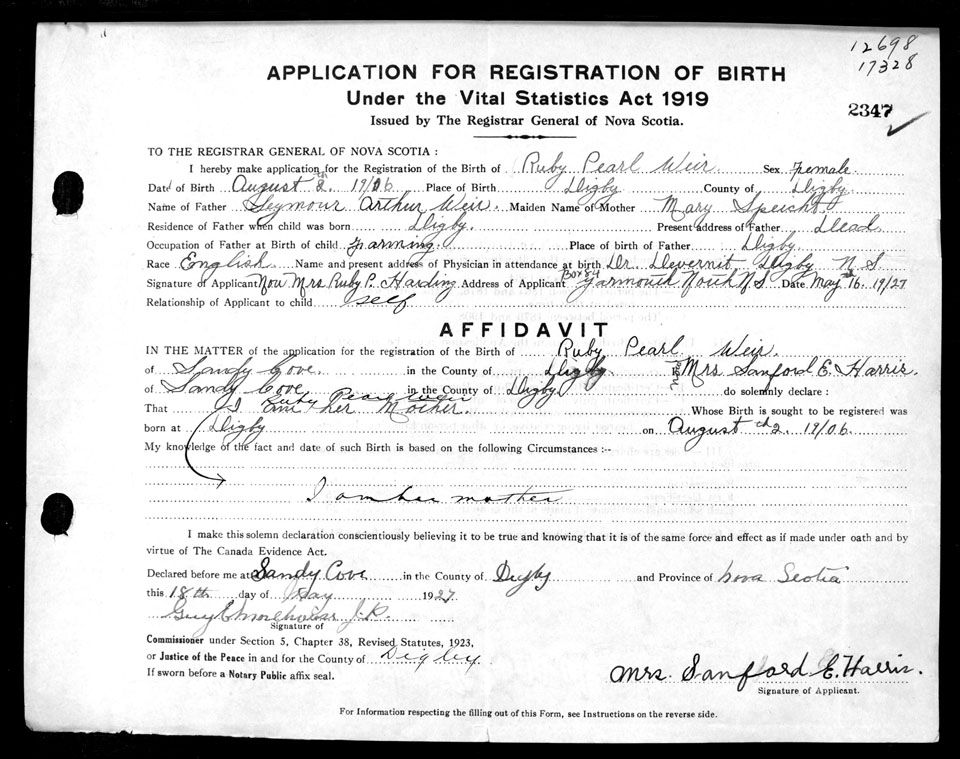 12698
17328
APPLICATION FOR REGISTRATION OF BIRTH
Under the Vital Statistics Act 1919
2347
Issued by The Registrar General of Nova Scotia.
TO THE REGISTRAR GENERAL OF NOVA SCOTIA :
I hereby make application for the Registration of the Birth of Ruby Pearl Weir Sex Female.
Date of Birth August 2. 19/06 Place of Birth Digby County of Digby
Name of Father Seymour Arthur Weir. Maiden Name of Mother Mary Speicht
Residence of Father when child was born Digby. Present address of Father Dead
Occupation of Father at Birth of child Farming. Place of birth of Father Digby
Race English Name and present address of Physician in attendance at birth Dr. Digby N S
Signature of Applicant Now Mrs Ruby P. Harding Address of Applicant Box 84 Yarmouth North N.S. Date May 16. 19/27
Relationship of Applicant to child self
AFFIDAVIT
IN THE MATTER of the application for the registration of the Birth of Ruby Pearl Weir.
of Sandy Cove. in the County of Digby Mrs Sanford E. Harris.
of Sandy Cove in the County of Digby do solemnly declare :
Ruby Pearl Weir
That I am her Mother. Whose Birth is sought to be registered was
born at Digby on August 2. 19/06.
My knowledge of the fact and date of such Birth is based on the following Circumstances :--
I am her mother
I make this solemn declaration conscientiously believing it to be true and knowing that it is of the same force and effect as if made under oath and by
virtue of The Canada Evidence Act.
Declared before me at Sandy Cove in the County of Digby and Province of Nova Scotia
this 18th day of May 1927
J.P.
Signature of
Commissioner under Section 5, Chapter 38, Revised Statutes, 1923,
or Justice of the Peace in and for the County of Digby.
If sworn before a Notary Public affix seal.
Mrs. Sanford E. Harris.
Signature of Applicant.
For Information respecting the filling out of this Form, see Instructions on the reverse side.